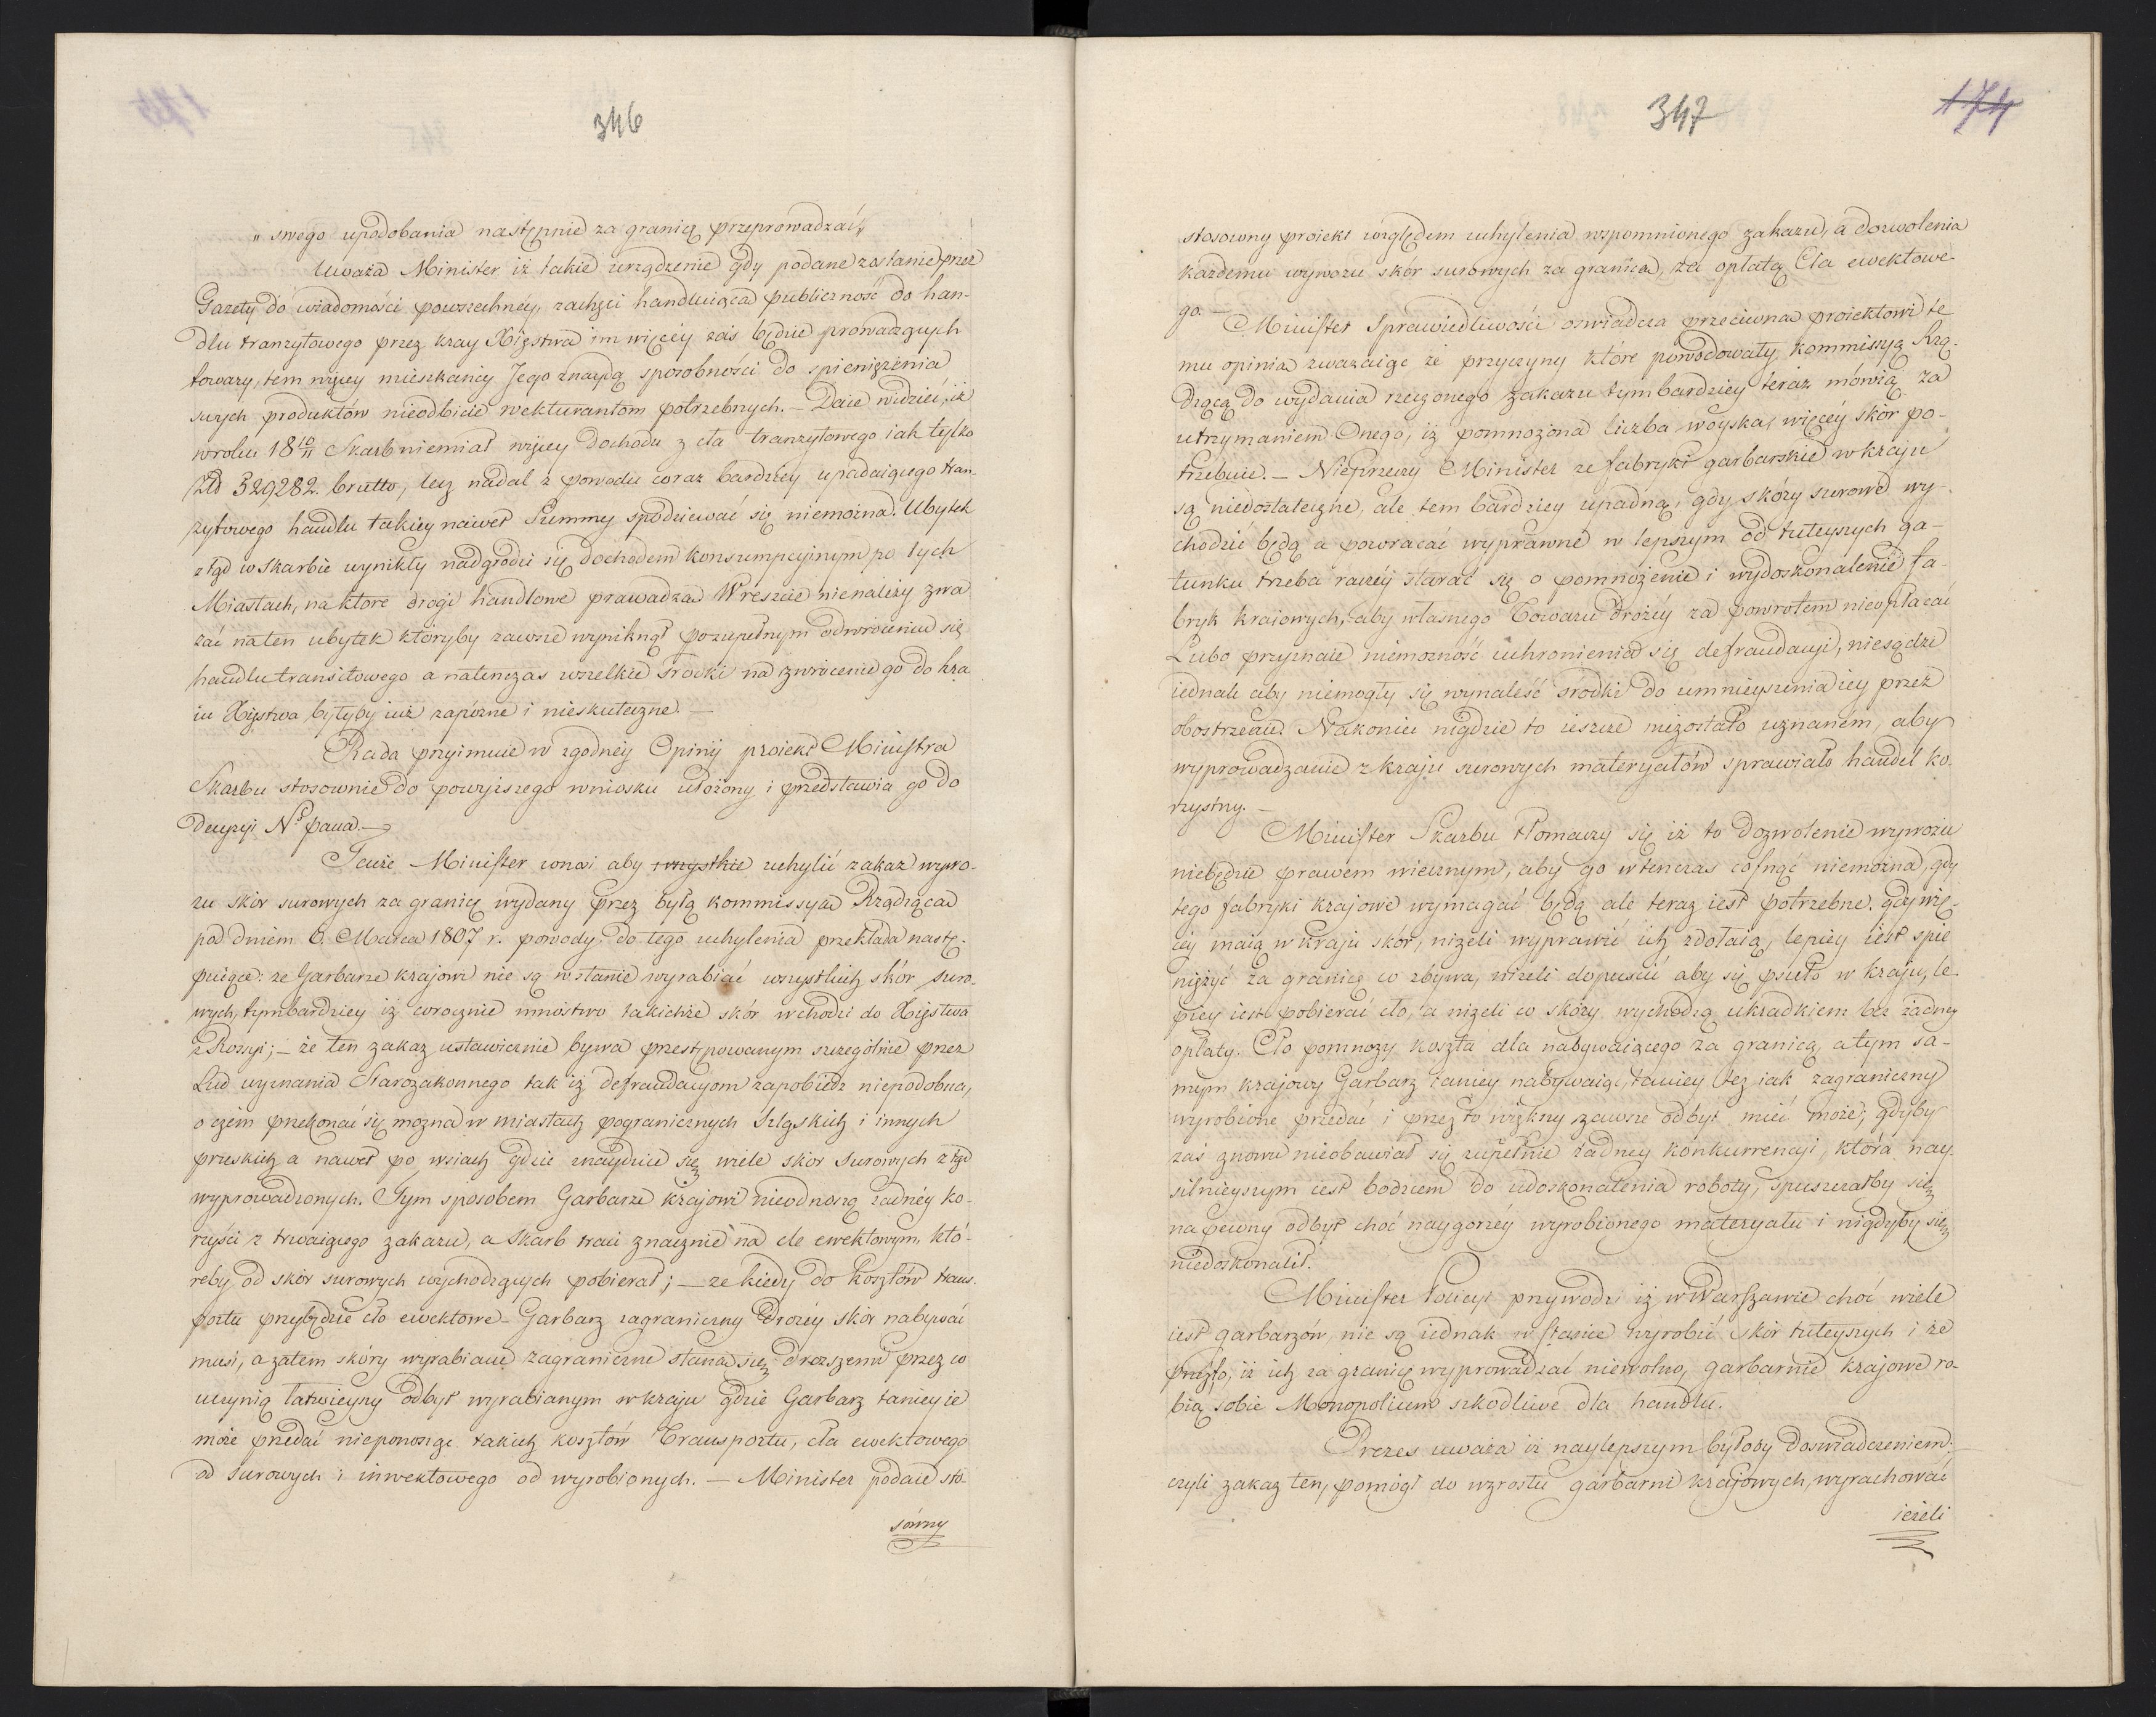 346
„ swego upodobania następnie za granicę przeprowadzać„
Uważa Minister iż takie urządzenie gdy podane zostanie przez
Gazety do wiadomości powszechney, zachęci handluiącą publiczność do han-
dlu tranzytowego przez kray Xięstwa im więcey zaś będzie prowadzących
towary, tem więcey mieszkańcy Jego znaydą sposobności do spieniężenia
swych produktów nieodbicie wekturantom potrzebnych. – Daie widzieć, iż
w roku 18 10/11 Skarb niemiał więcey dochodu z cła tranzytowego iak tylko
Złł 329282. brutto, lecz nadal z powodu coraz bardziey upadaiącego tran-
zytowego handlu takiey nawet Summy spodziewać się niemożna. Ubytek
ztąd w Skarbie wynikły nadgrodzi się dochodem konsumpcyinym po tych
Miastach, na które drogi handlowe prawadzą. Wreszcie nienależy zwa-
żać na ten ubytek któryby zawsze wyniknął po zupełnym odwróceniu się
handlu transitowego a natenczas wszelkie środki na zwrócenie go do kra
iu Xięstwa byłyby iuż zapóźne i nieskuteczne. –
Rada przyimuie w zgodney Opinij proiekt Ministra
Skarbu stosownie do powyższego wniosku ułożony i przedstawia go do
decyzyi N° pana. –
Tenże Minister wnosi aby wszystkie uchylić zakaz wywo-
zu skór surowych za granicę wydany przez byłą Kommissyą Rządzącą
pod dniem 6. Marca 1807 r. powody do tego uchylenia przekłada nastę-
puiące: że Garbarze krajowi nie są w stanie wyrabiać wszystkich skór suro-
wych, tymbardziey iż corocznie mnóstwo takichże skór wchodzi do Xięstwa
z Rossyi; – że ten zakaz ustawicznie bywa przestępowanym szczególnie przez
Lud wyznania Starozakonnego tak iż defraudacyom zapobiedz niepodobna,
o czem przekonać się można w miastach pogranicznych Szląskich i innych
pruskich a nawet po wsiach gdzie znayduie się wiele skór surowych ztąd
wyprowadzonych. Tym sposobem Garbarze krajowi nieodnoszą żadney ko-
rzyści z trwaiącego zakazu, a Skarb traci znacznie na cle ewektowym, któ-
reby od skór surowych wychodzących pobierał; – że kiedy do kosztów trans-
portu przybędzie cło ewektowe – Garbarz zagraniczny drożey skór nabywać
musi, a zatem skóry wyrabiane zagraniczne staną się droższemi przez co
uczynią łatwieyszy odbyt wyrabianym w kraju gdzie Garbarz taniey ie
może przedać nieponosząc takich kosztów Transportu, cła ewektowego
od surowych i inwektowego od wyrobionych. – Minister podaie sto-
sówny
347
174
stosowny proiekt względem uchylenia wspomnionego zakazu, a dozwolenia
każdemu wywozu skór surowych za granicę, za opłatą Cła ewektowe-
go. –
Minister Sprawiedliwości oświadcza przeciwną proiektowi te
mu opinią zważaiąc że przyczyny które powodowały Kommissyą Rzą-
dzącą do wydania rzeczonego zakazu tym bardziey teraz mówią za
utrzymaniem Onego, iż pomnożona liczba woyska, więcey skór po-
trzebuie. – Nieprzeczy Minister że fabryki garbarskie w kraju
są niedostateczne, ale tem bardziey upadną, gdy skóry surowe wy-
chodzić będą a powracać wyprawne w lepszym od tuteyszych ga-
tunku trzeba raczey starać się o pomnożenie i wydoskonalenie fa-
bryk kraiowych, aby własnego Towaru drożey za powrotem nieopłacać
Lubo przyznaie niemożność uchronienia się defraudacyi, niesądzi
iednak aby niemogły się wynaleść środki do umnieyszenia iey przez
obostrzenie. Nakoniec nigdzie to ieszcze niezostało uznanem, aby
wyprowadzanie z kraju surowych materyałów sprawiało handel ko-
rzystny. –
Minister Skarbu tłomaczy się iż to dozwolenie wywozu
niebędzie prawem wiecznym, aby go wtenczas cofnąć niemożna, gdy
tego fabryki krajowe wymagać będą ale teraz iest potrzebne. gdy wię-
cey maią w kraju skór, niżeli wyprawić ich zdołaią, lepiey iest spie
niężyć za granicę co zbywa, niżeli dopuścić aby się psuło w kraju, le-
piey iest pobierać cło, a niżeli co skóry wychodzą ukradkiem bez żadney
opłaty. Cło pomnoży koszta dla nabywaiącego za granicą, a tym sa-
mym krajowy Garbarz taniey nabywaiąc, taniey też iak zagraniczny
wyrobione przedać i przez to większy zawsze odbyt mieć może; gdyby
zaś znowu nieobawiał się zupełnie żadney konkurrencyi, która nay-
silnieyszym iest bodzcem do udoskonalenia roboty, spuszczałby się
na pewny odbyt choć naygorzey wyrobionego materyału i nigdyby się
niedoskonalił.
Minister Policyi przywodzi iż w Warszawie choć wiele
iest garbarzów, nie są iednak w stanie wyrobić skór tuteyszych i że
przez to, iż ich za granicę wyprowadzać niewolno, garbarnie krajowe ro-
bią sobie Monopolium szkodliwe dla handlu.
Prezes uważa iż naylepszym byłoby doświadczeniem:
czyli zakaz ten, pomógł do wzrostu garbarni krajowych, wyrachować
ieżeli